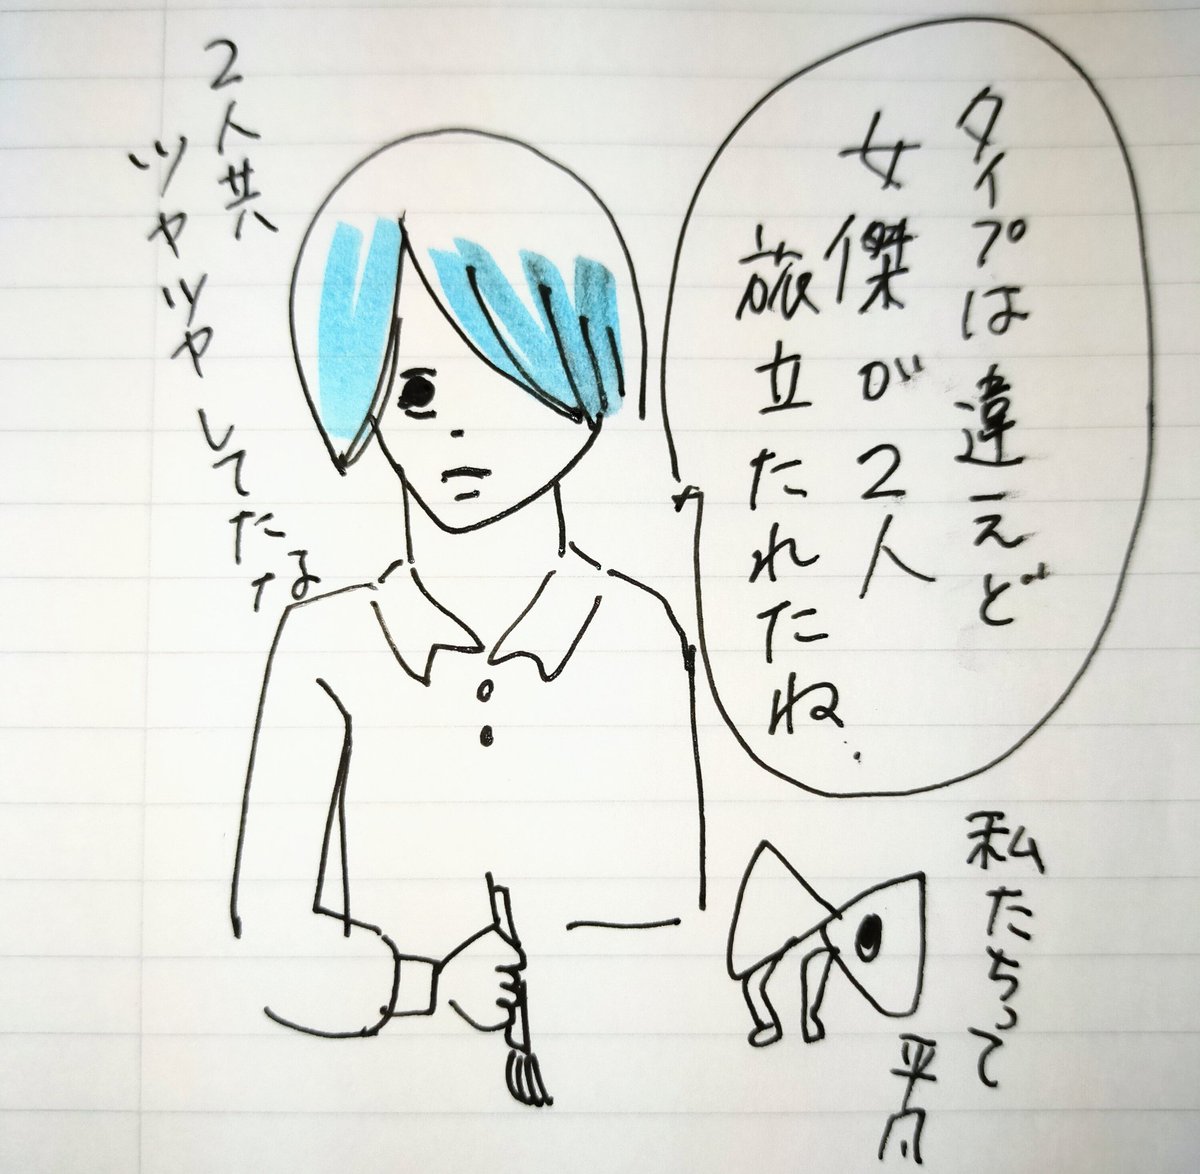 タイプは違えど
女傑が2人
旅立たれたね.
2人共
ツヤツヤ
してたな
私たちって
平凡